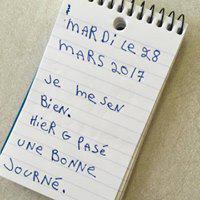 MARDI LE 28
MARS 2017
Je me sen
Bien.
Hier G PASé
UNE BONNE
JOURNÉ.